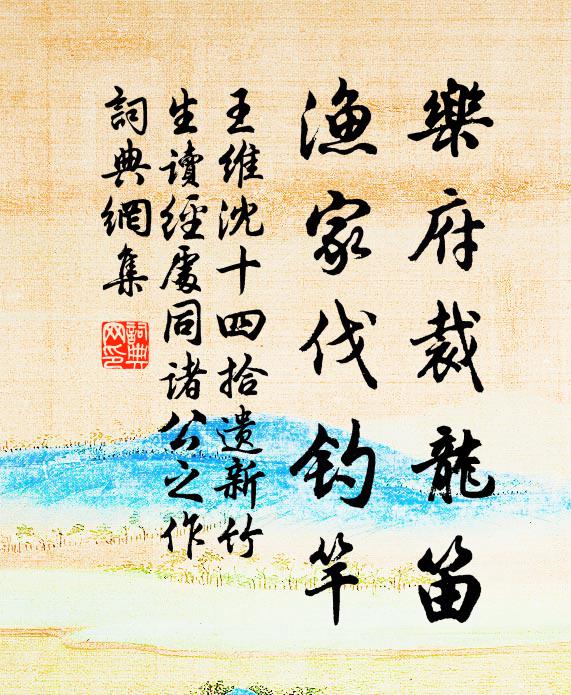 樂府裁龍笛
漁家伐釣竿
王維沈十四拾遺新竹
生讀經處同諸公之作
詞典網集
詞典网印